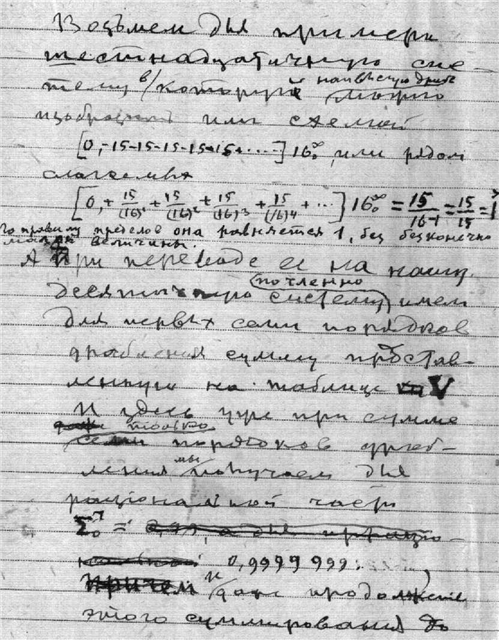 Возьмем для примера
шестнадцатичную сис-
тему в которую наивысшую дробь можно
изобразить или схемой
[0,-15-15-15-15-15-.....] 16∞0, или рядом
слагаемых
[0, + 15/(16)1 + 15/(16)2 + 15/(16)3 + 15/(16)4 + ...] 16∞0 = 15/16-1 = 15/15 = 1
По правилу пределов она равняется 1, без бесконечно
малой величины.
А при переводе ее на нашу
десятичную систему почленно имеем
для первых семи порядков
дробления сумму представ-
ленную на таблице V
И здесь уже при сумме
только
семи порядков дроб-
ления мы получаем для
рациональной части
Σ70 =
0,9999999.....
и даже продолжение
этого суммирования до